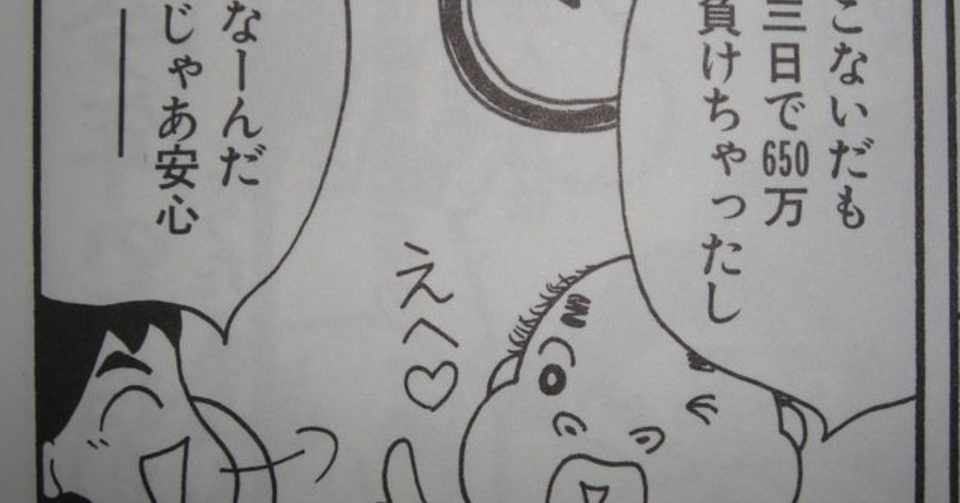 こないだも
三日で650万
負けちゃったし
えへ♡
なーんだ
じゃあ安心
――